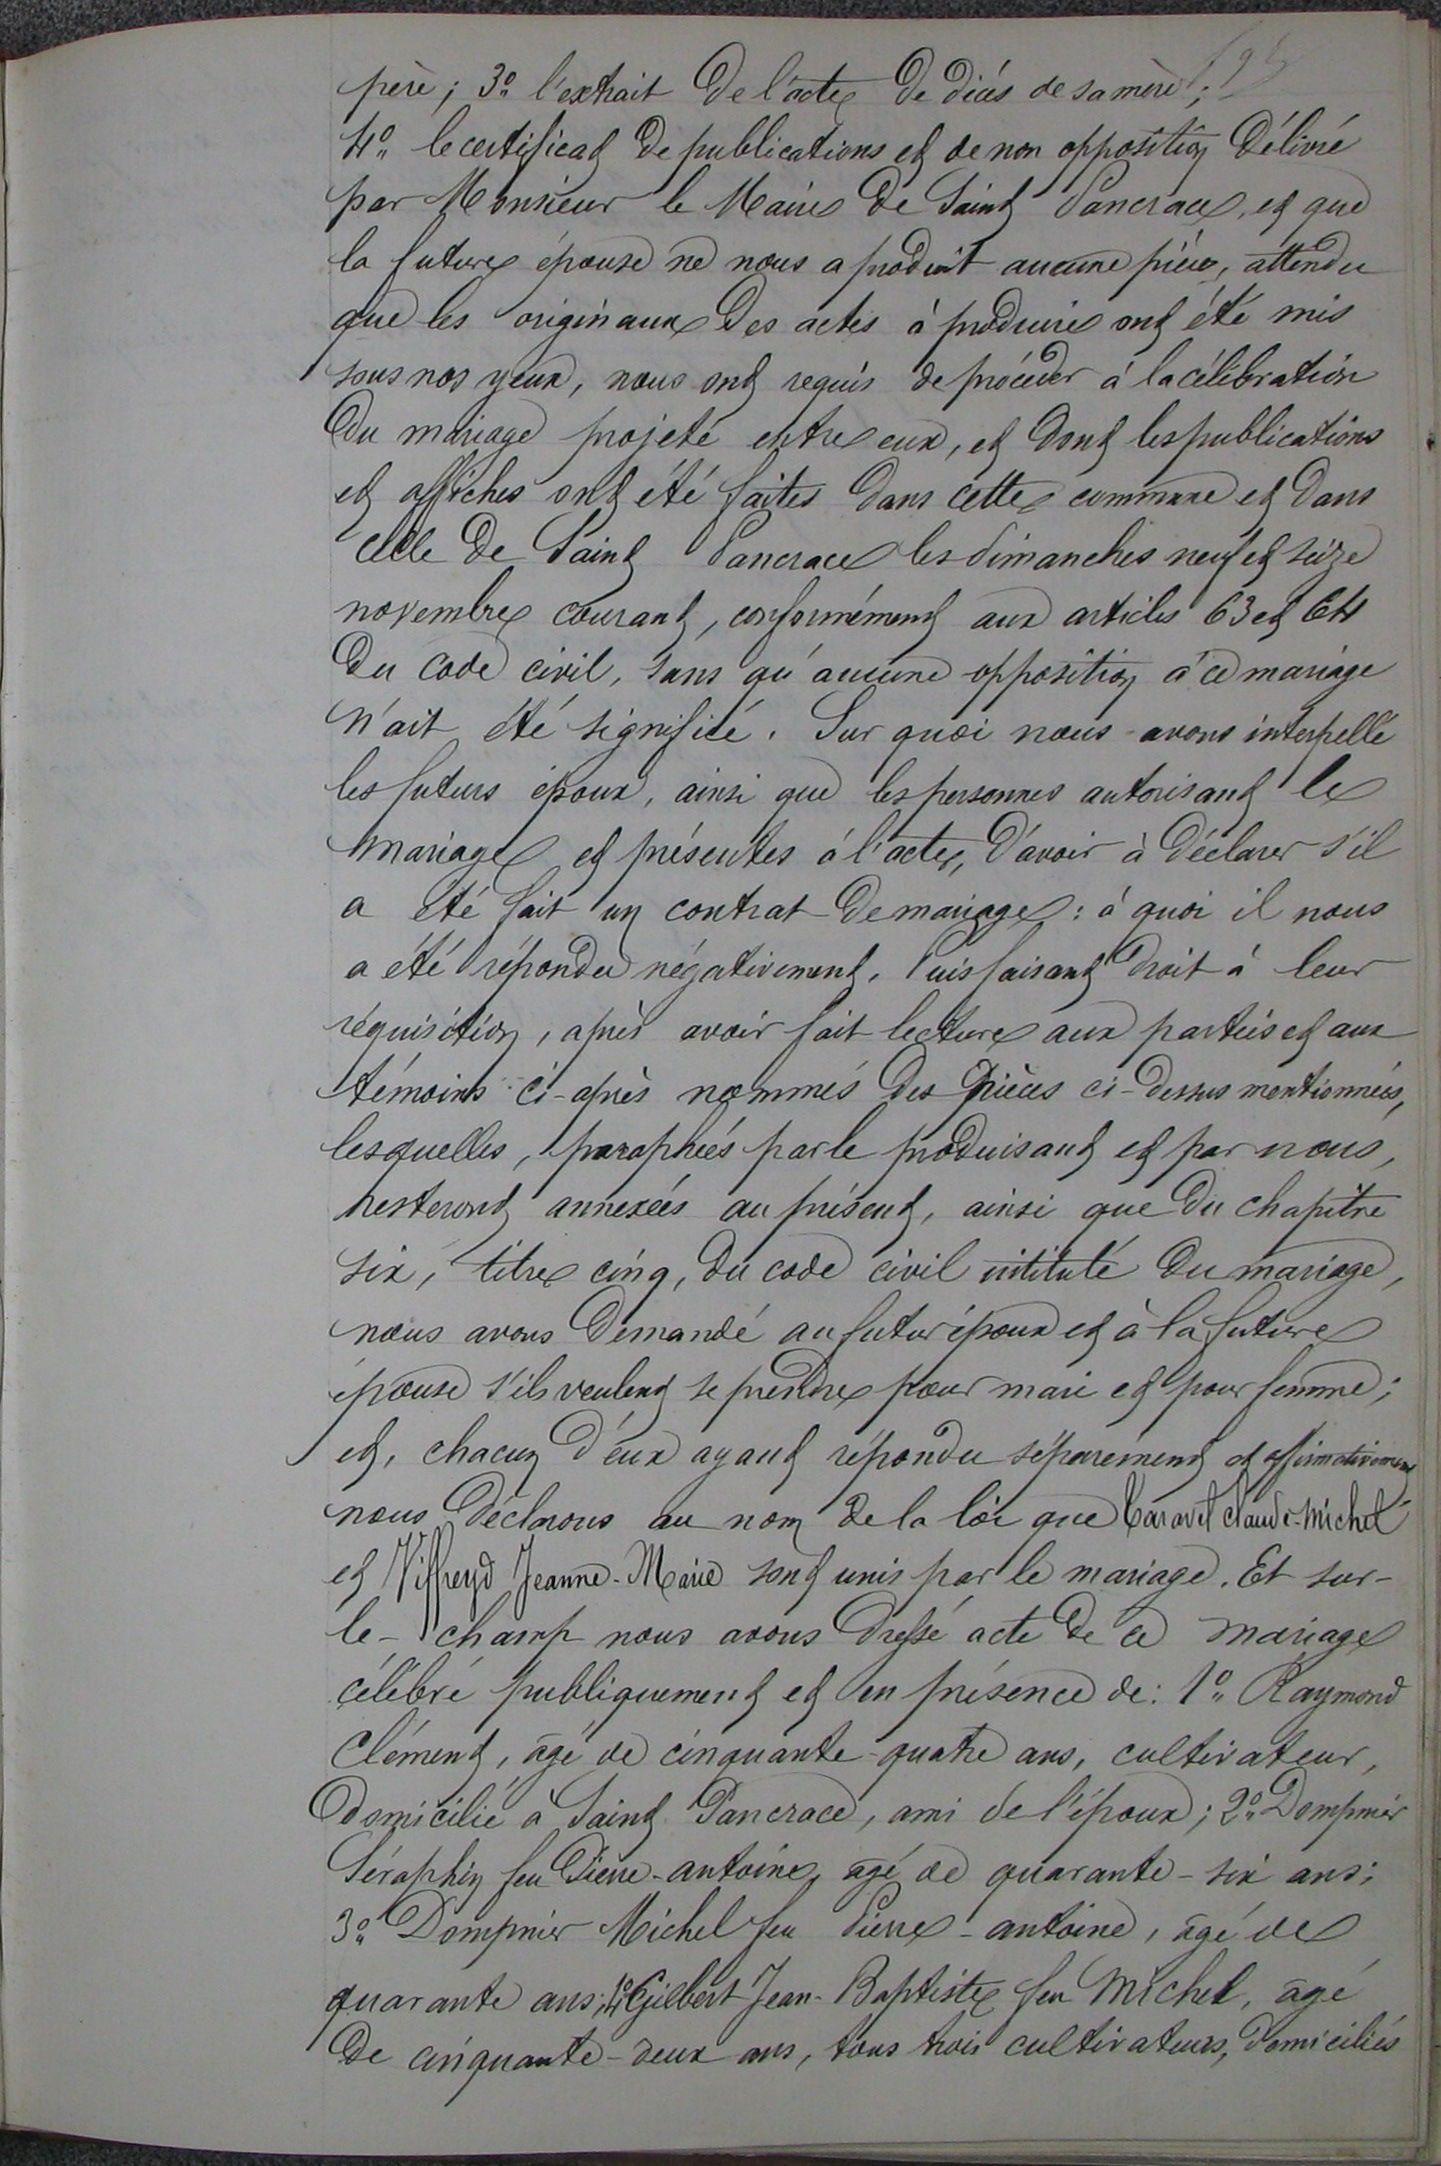 père ; 3º l'extrait de l'acte de décès de sa mère ;
4º le certificat de publications et de non opposition délivré
par Monsieur le Maire de Saint Pancrace, et que
la future épouse ne nous a produit aucune pièce, attendu
que les originaux des actes à produire ont été mis
sous nos yeux, nous ont requis de procéder à la célébration
du mariage projeté entre eux, et dont les publications
et affiches ont été faites dans cette commune et dans
celle de Saint Pancrace les dimanches neuf et seize
novembre courant, conformément aux articles 63 et 64
du code civil, sans qu'aucune opposition à ce mariage
n'ait été signifiée. Sur quoi nous avons interpellé
les futurs époux, ainsi que les personnes autorisant le
mariage et présentes à l'acte, d'avoir à déclarer s'il
a été fait un contrat de mariage : à quoi il nous
a été répondu négativement. Puis faisant droit à leur
réquisition, après avoir fait lecture aux parties et aux
témoins ci-après nommés des pièces ci-dessus mentionnées,
lesquelles, paraphées par le produisant et par nous,
resteront annexées au présent, ainsi que du chapitre
six, titre cinq, du code civil intitulé du mariage,
nous avons demandé au futur époux et à la future
épouse s'ils veulent se prendre pour mari et pour femme ;
et, chacun d'eux ayant répondu séparément et affirmativement
nous déclarons au nom de la loi que Caravel Claude-Michel
et Viffreyd Jeanne-Marie sont unis par le mariage. Et sur-
le-champ nous avons dressé acte de ce mariage
célébré publiquement et en présence de : 1º Raymond
Clément, âgé de cinquante-quatre ans, cultivateur,
domicilié à Saint Pancrace, ami de l'époux ; 2º Dompnier
Séraphin feu Pierre-antoine, âgé de quarante-six ans ;
3º Dompnier Michel feu Pierre-antoine, âgé de
quarante ans ; 4º Gilbert Jean-Baptiste feu Michel, âgé
de cinquante-deux ans, tous trois cultivateurs, domiciliés